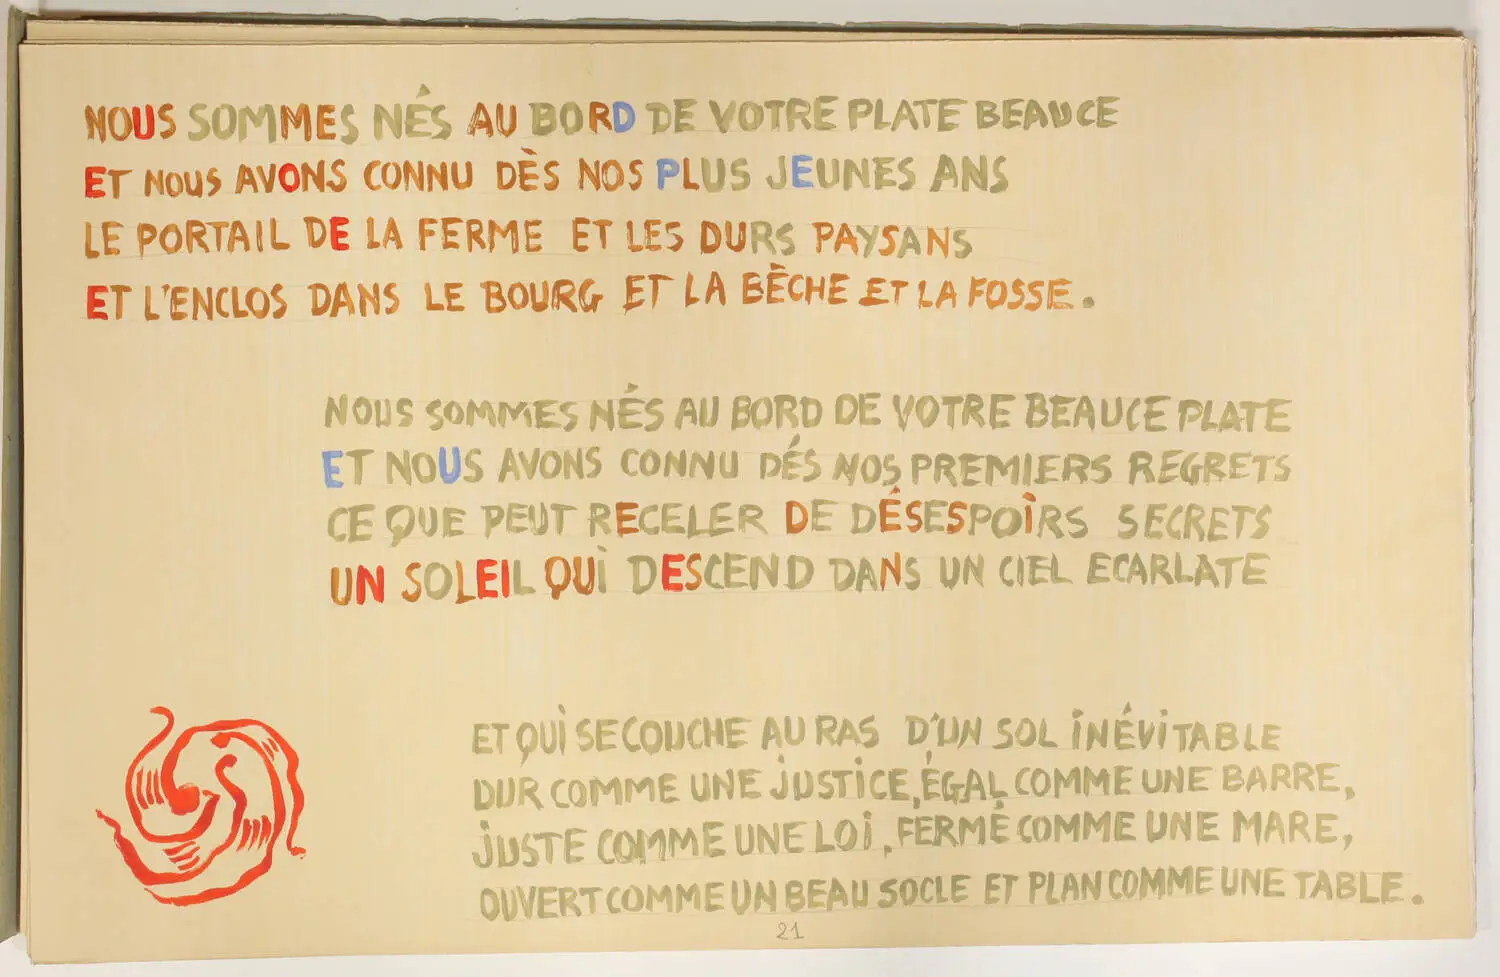 NOUS SOMMES NÉS AU BORD DE VOTRE PLATE BEAUCE
ET NOUS AVONS CONNU DÈS NOS PLUS JEUNES ANS
LE PORTAIL DE LA FERME ET LES DURS PAYSANS
ET L'ENCLOS DANS LE BOURG ET LA BÈCHE ET LA FOSSE.
NOUS SOMMES NÉS AU BORD DE VOTRE BEAUCE PLATE
ET NOUS AVONS CONNU DÉS NOS PREMIERS REGRETS
CE QUE PEUT RECELER DE DÉSESPOIRS SECRETS
UN SOLEIL QUI DESCEND DANS UN CIEL ECARLATE
ET QUI SE COUCHE AU RAS D'UN SOL INÉVITABLE
DUR COMME UNE JUSTICE, ÉGAL COMME UNE BARRE,
JUSTE COMME UNE LOI, FERMÉ COMME UNE MARE,
OUVERT COMME UN BEAU SOCLE ET PLAN COMME UNE TABLE.
21